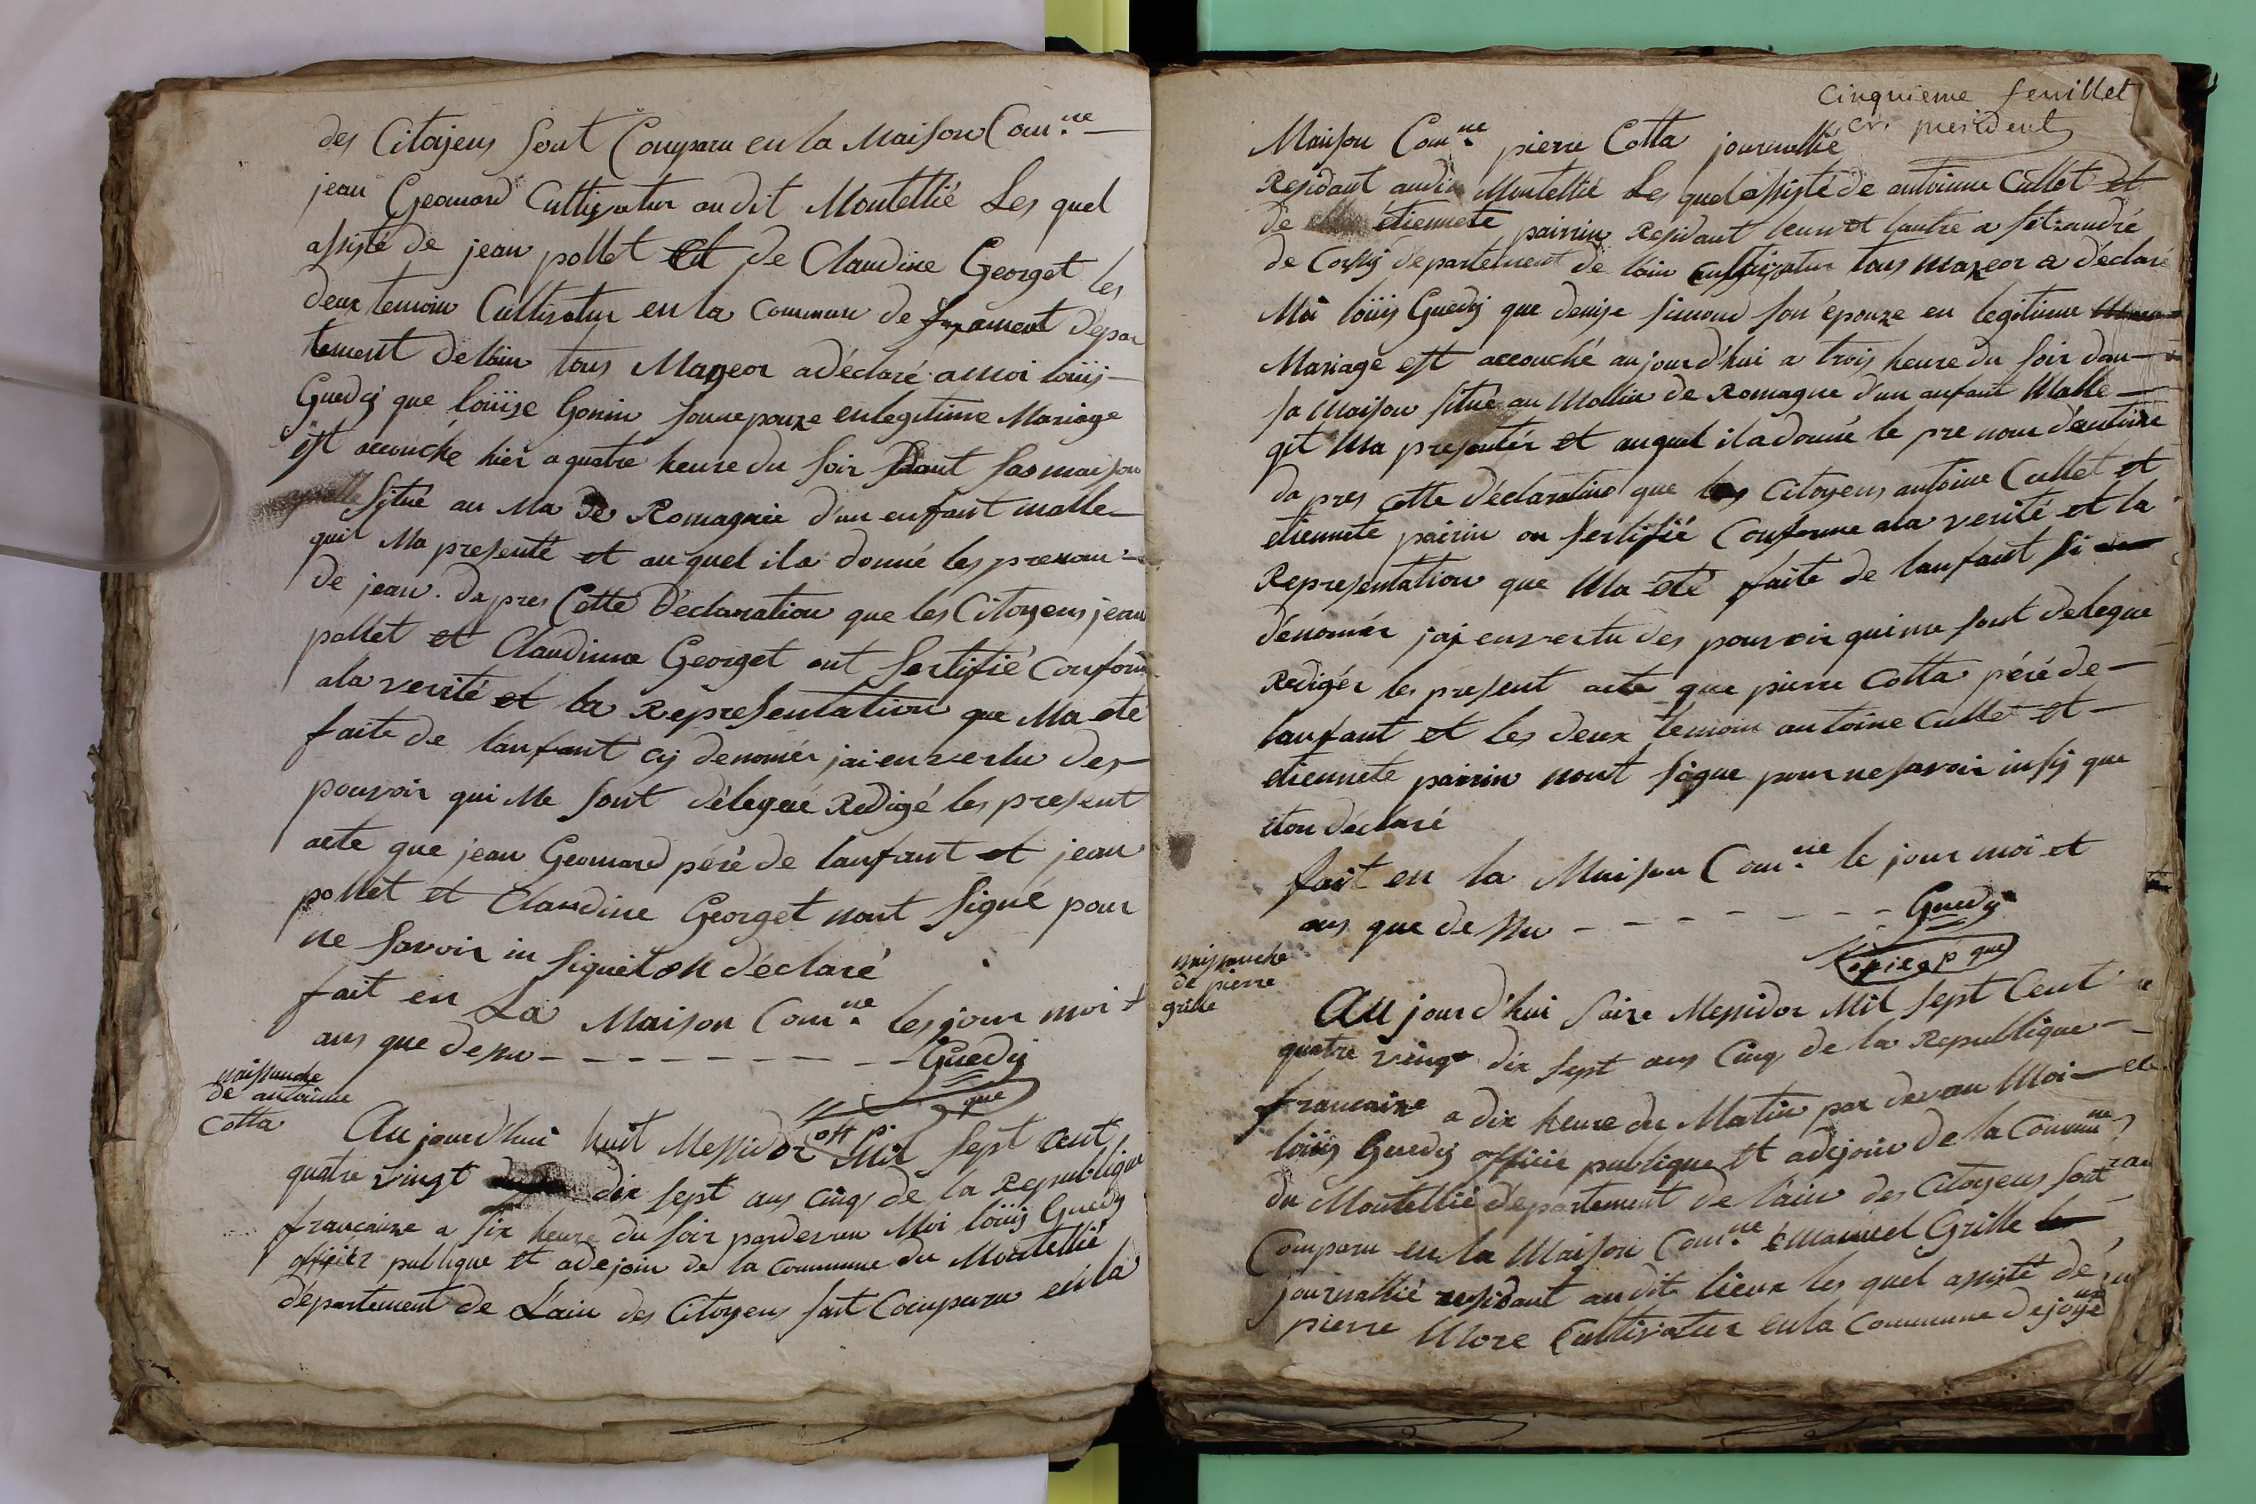 des Citoyens sont Comparu en la Maison Com.ne
jean Geomard Cultivatur au dit Montellié Les quel
assisté de jean pollet Et de Claudine Georget les
deux temoin Cultivatur en la commune de d'epar
tement de lain tous Mageor a déclaré a moi loüis
Guedy que loüise Gonin sonnepouze en legitime Mariage
est accouché hier a quatre heure du soir Dant sas maison
situé au Ma de Romagnie d'un enfant malle
quil Ma presenté et au quel il a donné les prenom
de jean. da pres Cette Déclaration que les Citoyens jean
pollet et Claudinne Georget ont sertifié Conform
a la verité et la Représentation que Ma eté
faite de lanfant cy denomér jai en vertu des
pouvoir qui Me sont délegué Redigé les present
acte que jean Geomard péré de lanfant et jean
pollet et Claudine Georget nont signé pour
ne savoir in siquiton déclaré
fait en La Maison Com.ne les jour moi +
ans que dessu - - - - - - - - Guedy
off p. que
naissanche
de antoinne
Cotta
Au jourd'hui huit Messidor Mil sept cent
quatre vingt dix sept ans cinq de la Republique
francaize a six heure du soir pardevan Moi loüis Guedy
officiér publique et adejoin de la Commune du Montellié
département de Lain des Citoyens sont Comparu en la
Cinquieme feuillet
cn president
Maison Com.ne pierre Cotta journallié
Residant audit Montellié Les quel assisté de antoinne Cullet et
de étiennete pairin Residant leun et lautre a st. andré
de Corsy département de lain cultivatur tous mageor a déclaré
Moi loüis Guedy que denise simond son épouze en legitime
Mariage est accouché aujourd'hui a trois heure du soir dan
sa Maison situé au Mollin de Romagne d'un anfant Malle
qil Ma presentér et auquel il a donné le pre nom d'antoine
da pres cette déclaration que les Citoyens antoine Cullet et
etiennete pairin on sertifié Conforme a la verité et la
Representation que Ma eté faite de lanfant si
dénomér jai en vertu des pouvoir qui me sont delegue
Redigér les present acte que pierre Cotta péré de
lanfant et les deux temoin antoine Cullet et
etiennete pairin nont signe pour ne savoir insy que
iton déclaré
fait en la Maison Com.ne le jour moi et
ans que dessu - - - - - - - Guedy
que
naissanche
de pierre
grille
Au jourd'hui saire Messidor Mil sept Cent
quatre vingt dix sept ans Cinq de la Republique
francaize a dix heure du Matin par devan Moi
loüis Guedy officié publique et adejoin de la Commune
du Montellié département de lain des Citoyens sont
Comparu en la Maison Com.ne emanuel Grille
journallié residant audit lieux les quel assisté de
pierre More Cultivatur en la Commune de joye